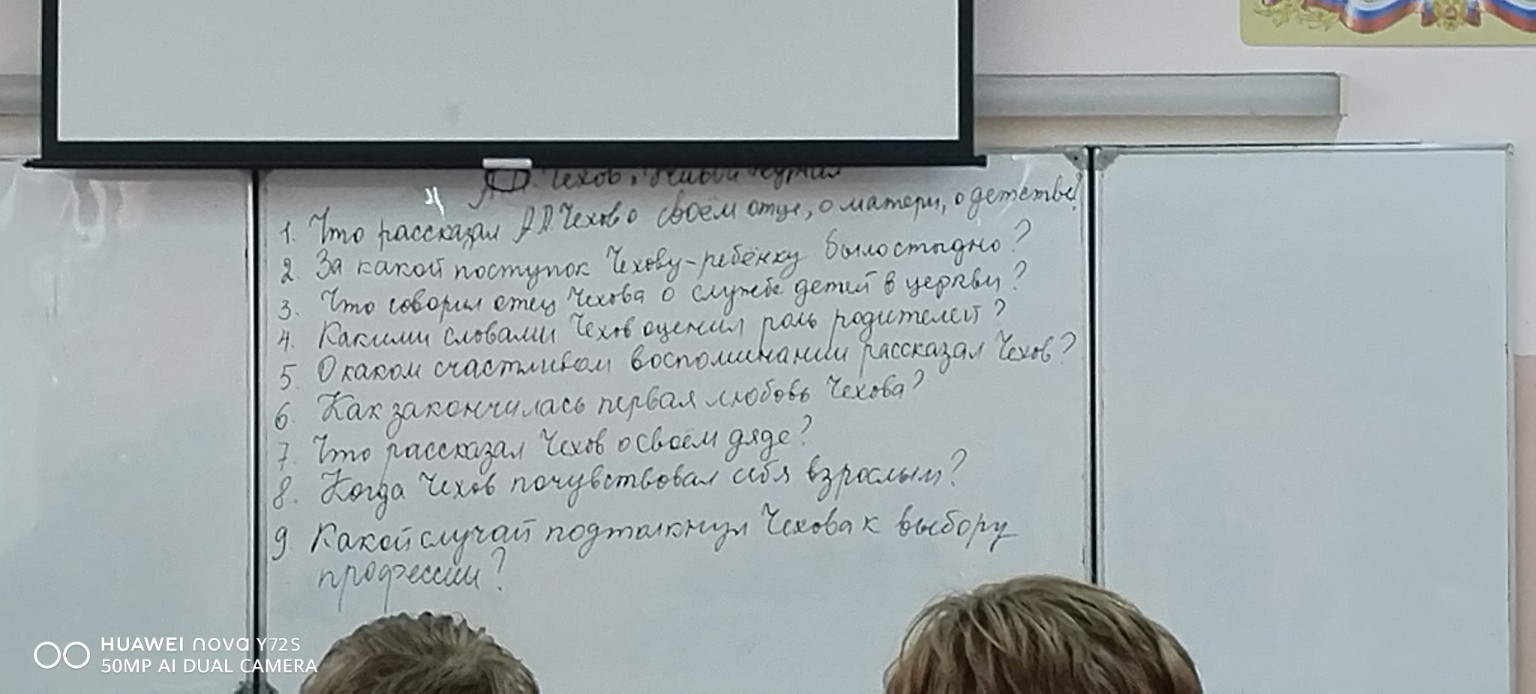 А.П. Чехов. "Живой журнал
1. Что рассказал А.П. Чехов о своём отце, о матери, о детстве?
2. За какой поступок Чехову-ребёнку было стыдно?
3. Что говорил отец Чехова о службе детей в церкви?
4. Какими словами Чехов оценил роль родителей?
5. О каком счастливом воспоминании рассказал Чехов?
6. Как закончилась первая любовь Чехова?
7. Что рассказал Чехов о своём дяде?
8. Когда Чехов почувствовал себя взрослым?
9 Какой случай подтолкнул Чехова к выбору
профессии?
HUAWEI nova Y72S
50MP AI DUAL CAMERA